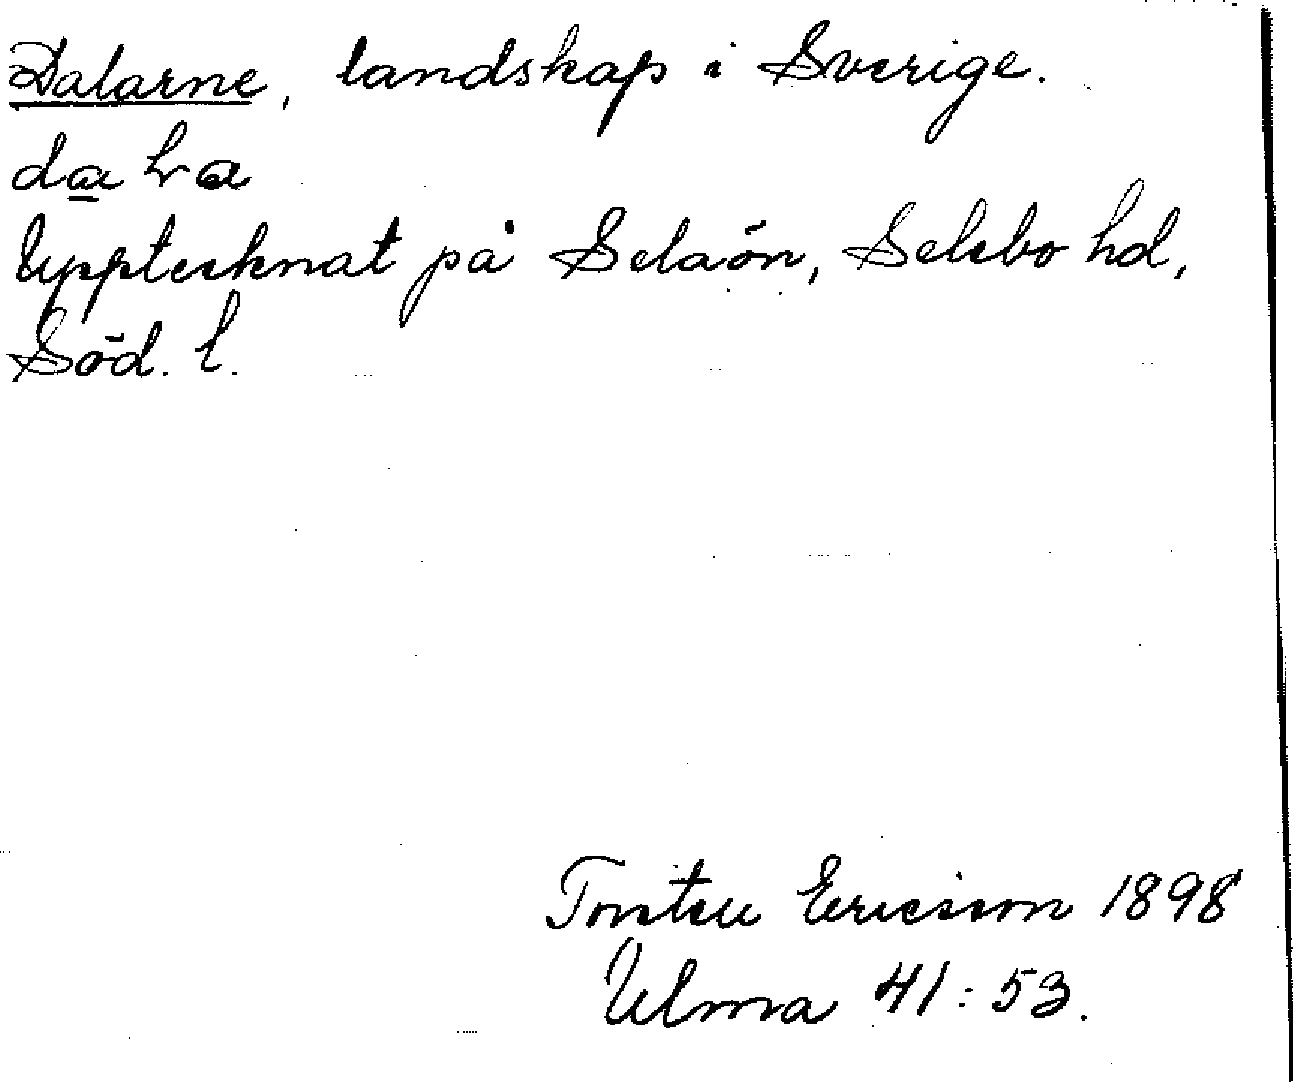 Dalarne, landskap i Sverige.
Upptecknat på Selaön, Selebo hd,
Söd. l.
Torsten Ericsson 1898
Ulma 41:53.